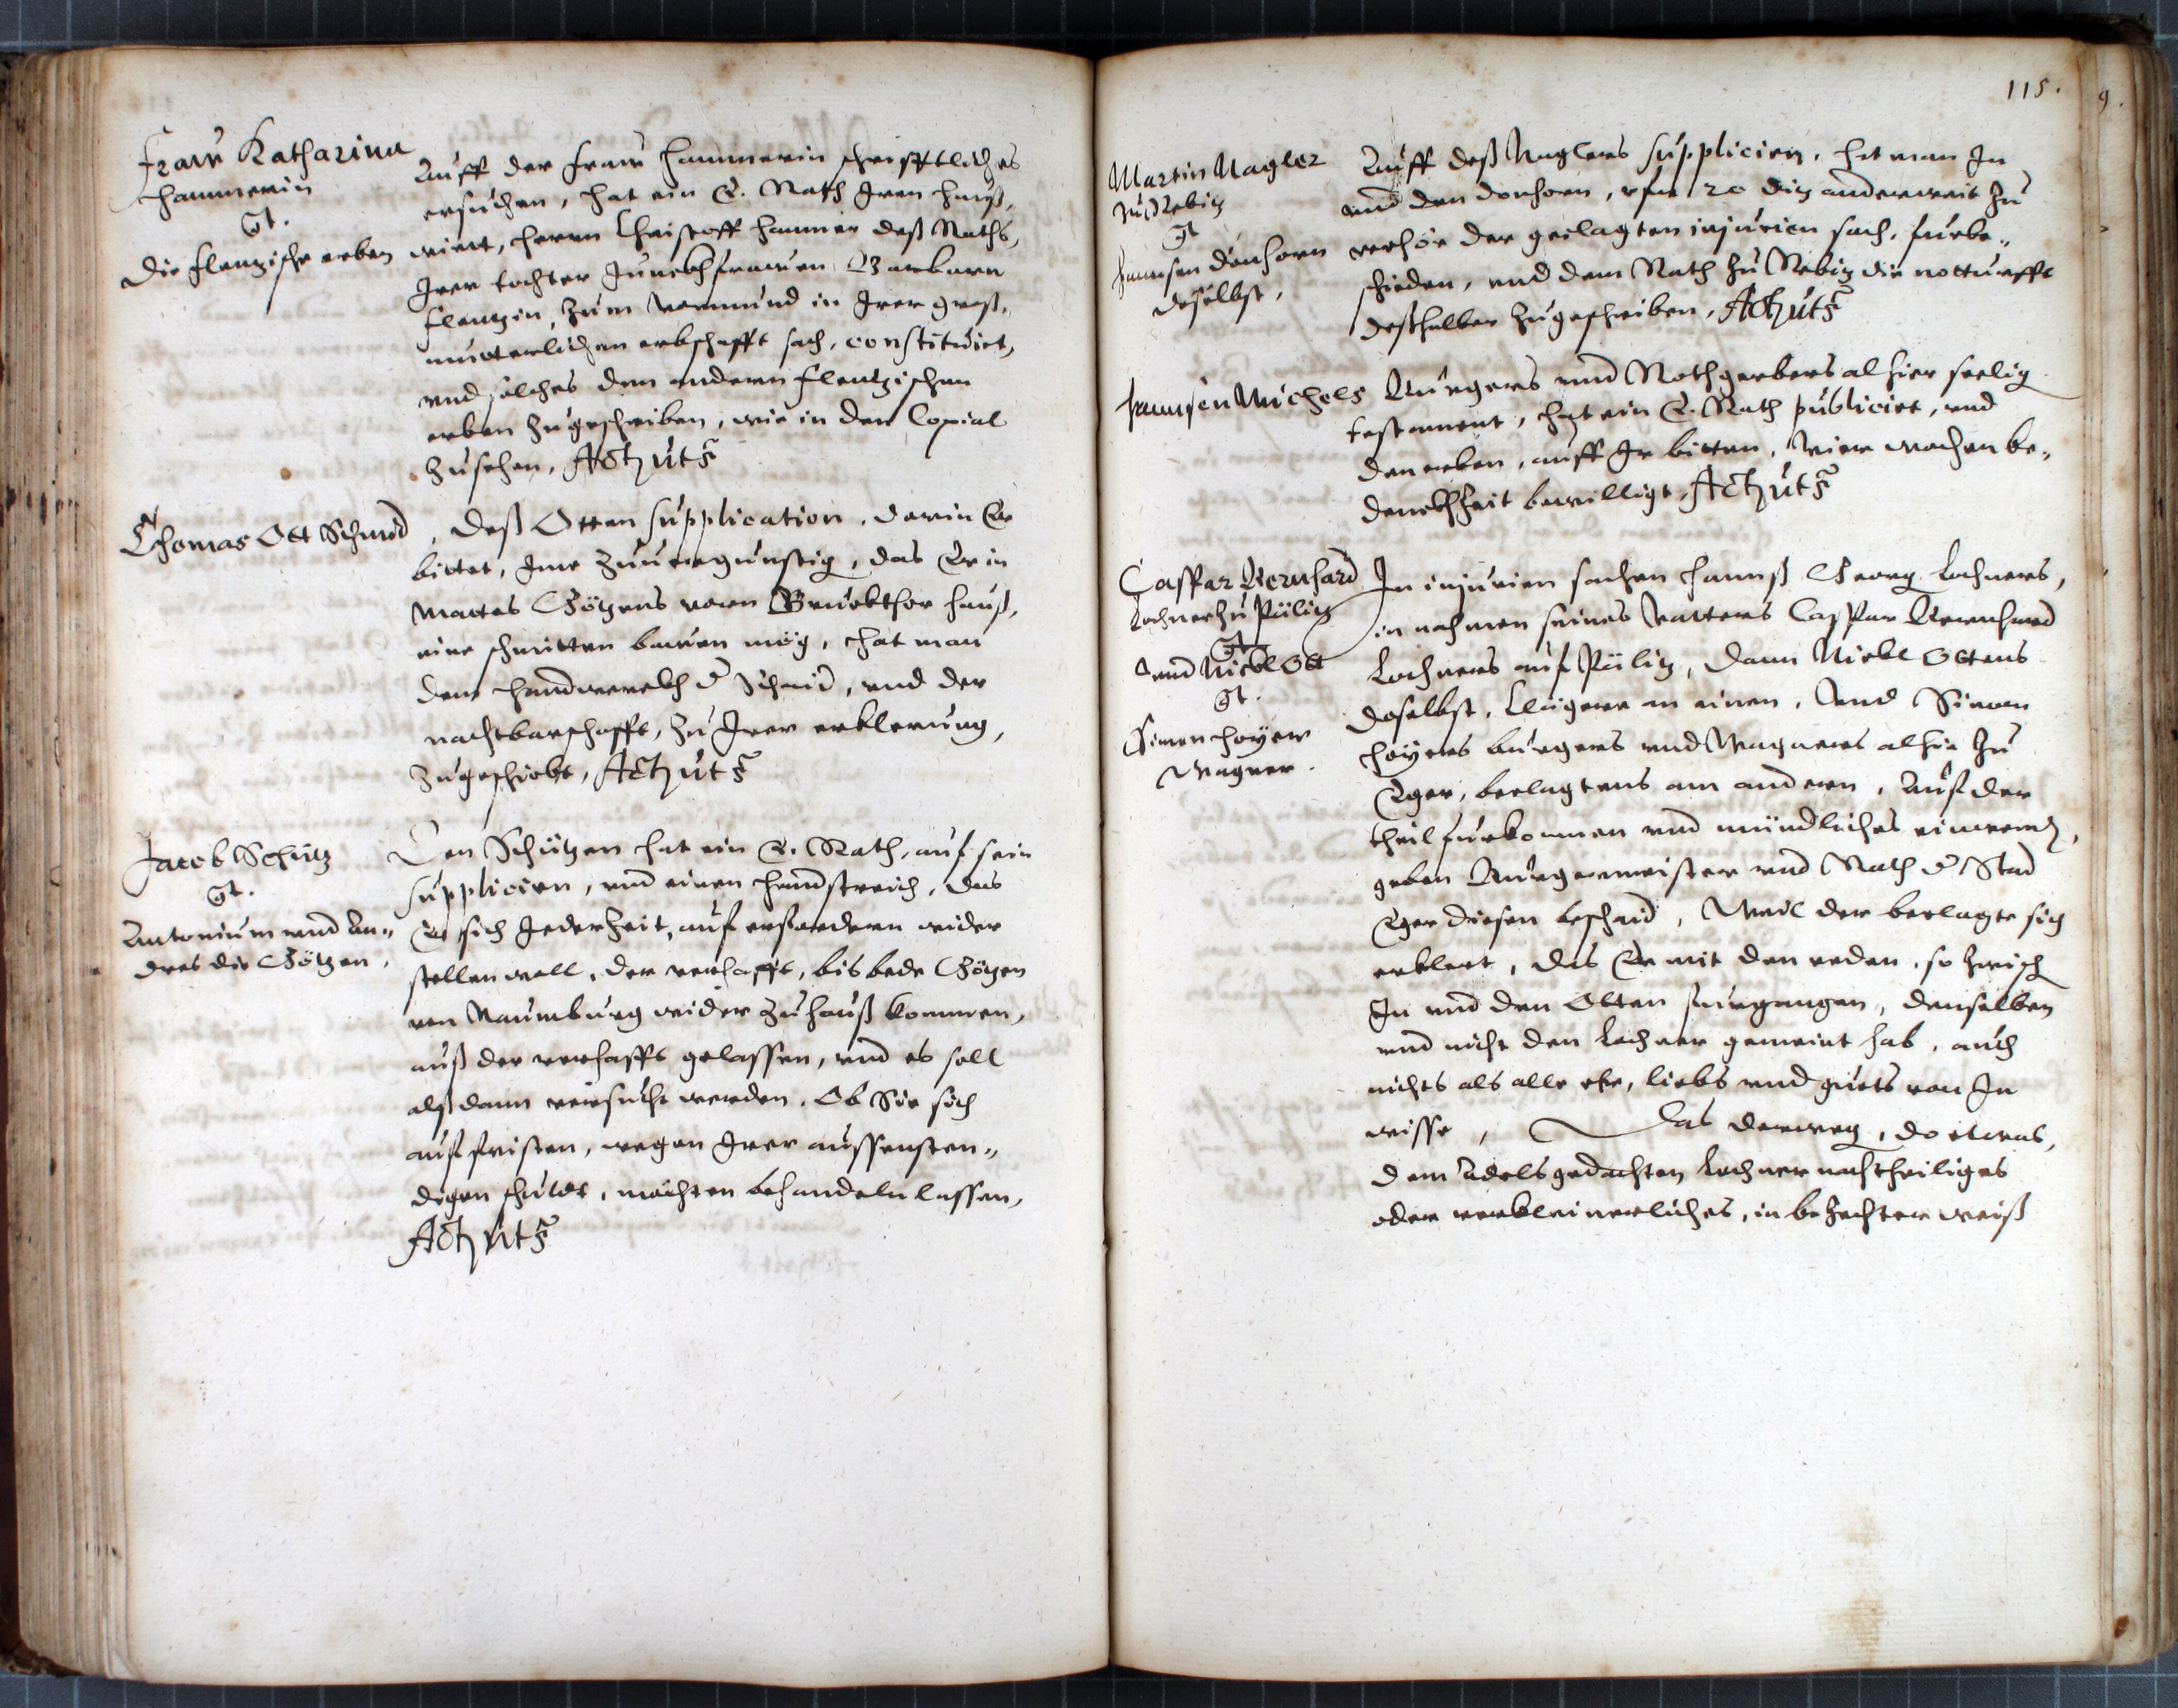 Fraw Katharina
Hammerin
Ct.
Die Clentzische erben
Auff der Frau Hammerin schrifftliches
ersuchen, hat ein E. Rath Iren hauß,
wirtt, Herrn Christoff Hammer deß Raths,
Irer tochter Junckhfrawen Barbarn
Clentzin, zum Vormund in Irer groß,
mutterlichen erbschafft sach, constituirt,
vnd solches den andern Clentzischen
erben zugeschrieben, wie in dem Copial
zusehen, Actum ut supra
Thomas Ott Schmid
, Deß Otten supplication, darin Er
bittet, Ime zuuergunstig, das Er in
Mattes Götzens vorm Bruckthor hauß,
eine schmitten bauen mög, hat man
dem handwerckh der Schmid, vnd der
nachtbarschafft, zu Irer erklerung,
zugeschickt, Actum ut supra
Jacob Schütz
Ct.
Antonium vnd An„
dres die Götzen,
Den Schützen hat ein E. Rath, auf sein
suppliciren, vnd einen handstreich, das
Er sich Jederzeit, auf erfordern wider
stellen woll, der verhafft, bis bede Götzen
von Naumburg wider zuhauß kommen,
auß der verhafft gelassen, vnd es soll
alßdann versucht werden, Ob Sie sich
auf fristen, wegen Irer aussensten„
digen schuldt, möchten behandeln lassen,
Actum ut supra
115.
Martin Nagler
zu Rebitz
Ct
Hannsen Donhorn
doselbst,
Auff deß Naglers suppliciren, hat man In
vnd den Donhorn, vfm 20 diz anderweit zu
verhör der geclagten injurien sach, furbe„
schieden, vnd dem Rath zu Rebitz die notturfft
deßhalben zugeschrieben, Actum ut supra
Hannsen Michels
Burgers vnd Rothgerbers alhier seelig
testament, hat ein E. Rath publicirt, vnd
den erben, auff Ir bitten, Vier wochen be„
denckhzeit bewilligt, Actum ut supra
Casspar Bernhard
Lochner zu Pülitz
Ct
vnd Nickl Ott
Ct.
Simon Hoyer
Wagner.
In injurien sachen Hannß Georg Lochners,
in nahmen seines Vatters Casspar Bernhard
Lochners auf Pülitz, dann Nickl Ottens
doselbst, Clägere an einen, Vnd Simon
Hoyers burgers vnd Wagners alhie zu
Eger, beclagtens am andern, Auf der
theil furkommen vnd mündliches einwend,
geben Burgermeister vnd Rath der Stad
Eger diesen beschaid, Weil der beclagte sich
erklert, das Er mit den reden, so zwisch
In vnd den Otten furgangen, denselben
vnd nicht den Lochner gemeint hab, auch
nichts als alle ehr, liebs vnd guets von Im
wisse, Das derweg, do etwas,
dem Adelsgedachten Lochner nachtheiliges
oder verkleinerliches, in bezechter weiß